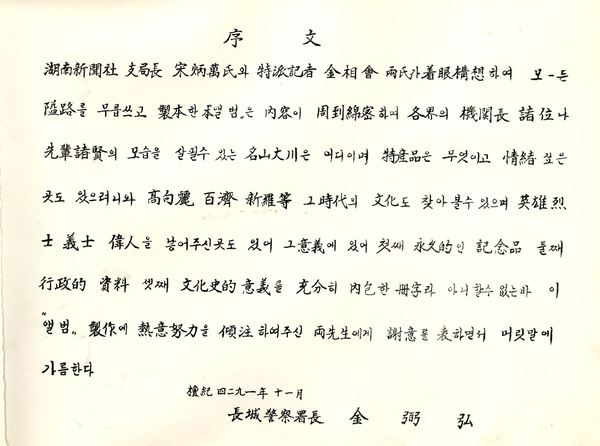 序 文
湖南新聞社 支局長 宋炳萬氏와 特派記者 金相會 兩氏가 着眼構想하여 모-든
隘路를 무릅쓰고 製本한 本„앨범„은 内容이 周到綿密하여 各界의 機關長 諸位나
先輩諸賢의 모습을 살필수 있는 名山大川은 어디이며 特産品은 무엇이고 情緖 깊은
곳도 있으려니와 高句麗 百濟 新羅等 그時代의 文化도 찾아볼수 있으며 英雄烈
士 義士 偉人을 낳어주신곳도 있어 그意義에 있어 첫째 永久的인 記念品 둘째
行政的 資料 셋째 文化史的意義를 充分히 内包한 冊字라 아니할수 없는바 이
“앨범„ 製作에 熱意努力을 傾注하여주신 両先生에게 謝意를 表하면서 머릿말에
가름한다
檀紀 四二九一年 十一月
長城警察署長 金 弼 弘